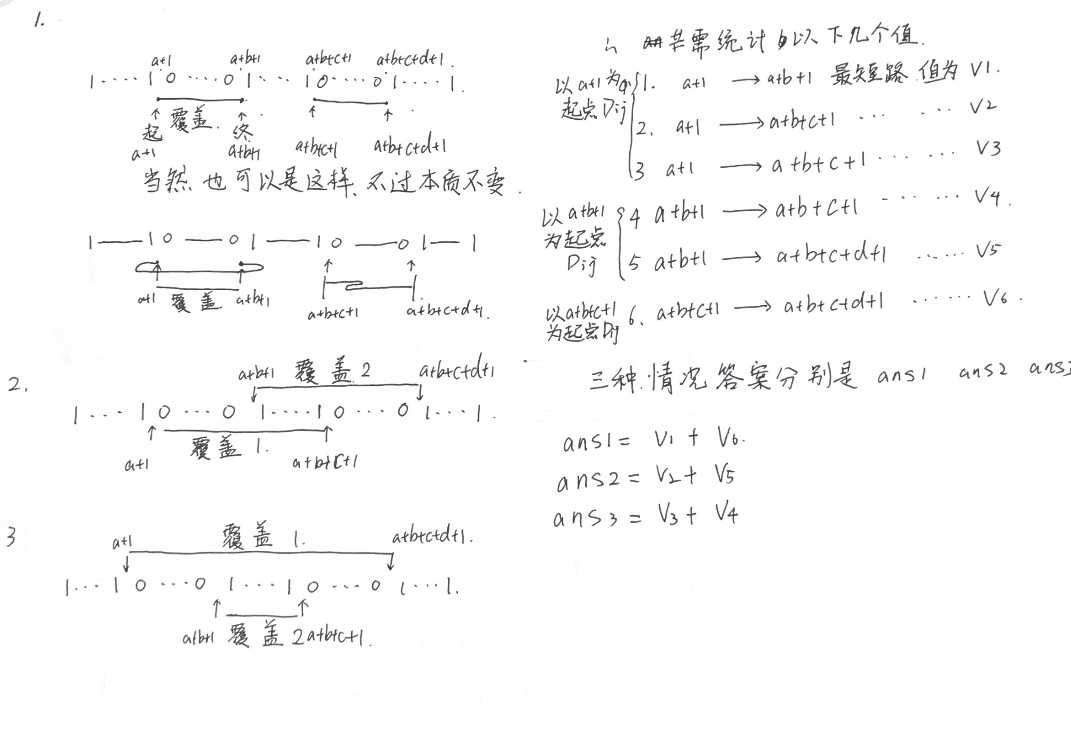 1.
a+1 a+b+1 a+b+c+1 a+b+c+d+1.
1····10····01···10····01···1
覆盖.
起 终
a+1 a+b+1 a+b+c+1 a+b+c+d+1
当然,也可以是这样,不过本质不变.
1——10——01——10——01—1
a+1 覆盖 a+b+1 a+b+c+1 a+b+c+d+1.
2.
a+b+1 覆盖2 a+b+c+d+1
1···10···01····10···01···1.
覆盖1.
a+1 a+b+c+1
3
a+1 覆盖1. a+b+c+d+1.
1···10···01···10···01···1.
a+b+1 覆盖2 a+b+c+1.
共需统计以下几个值.
以a+1为
起点Dij
1. a+1 → a+b+1 最短路,值为V1.
2. a+1 → a+b+c+1 ··· ··· V2
3 a+1 → a+b+c+1 ··· ··· V3
以a+b+1
为起点
Dij
4 a+b+1 → a+b+c+1 ··· ··· V4.
5 a+b+1 → a+b+c+d+1 ······ V5
以a+b+c+1
为起点Dij
6. a+b+c+1 → a+b+c+d+1 ······ V6.
三种情况答案分别是 ans1 ans2 ans3
ans1= V1 + V6.
ans2= V2+ V5
ans3= V3+ V4